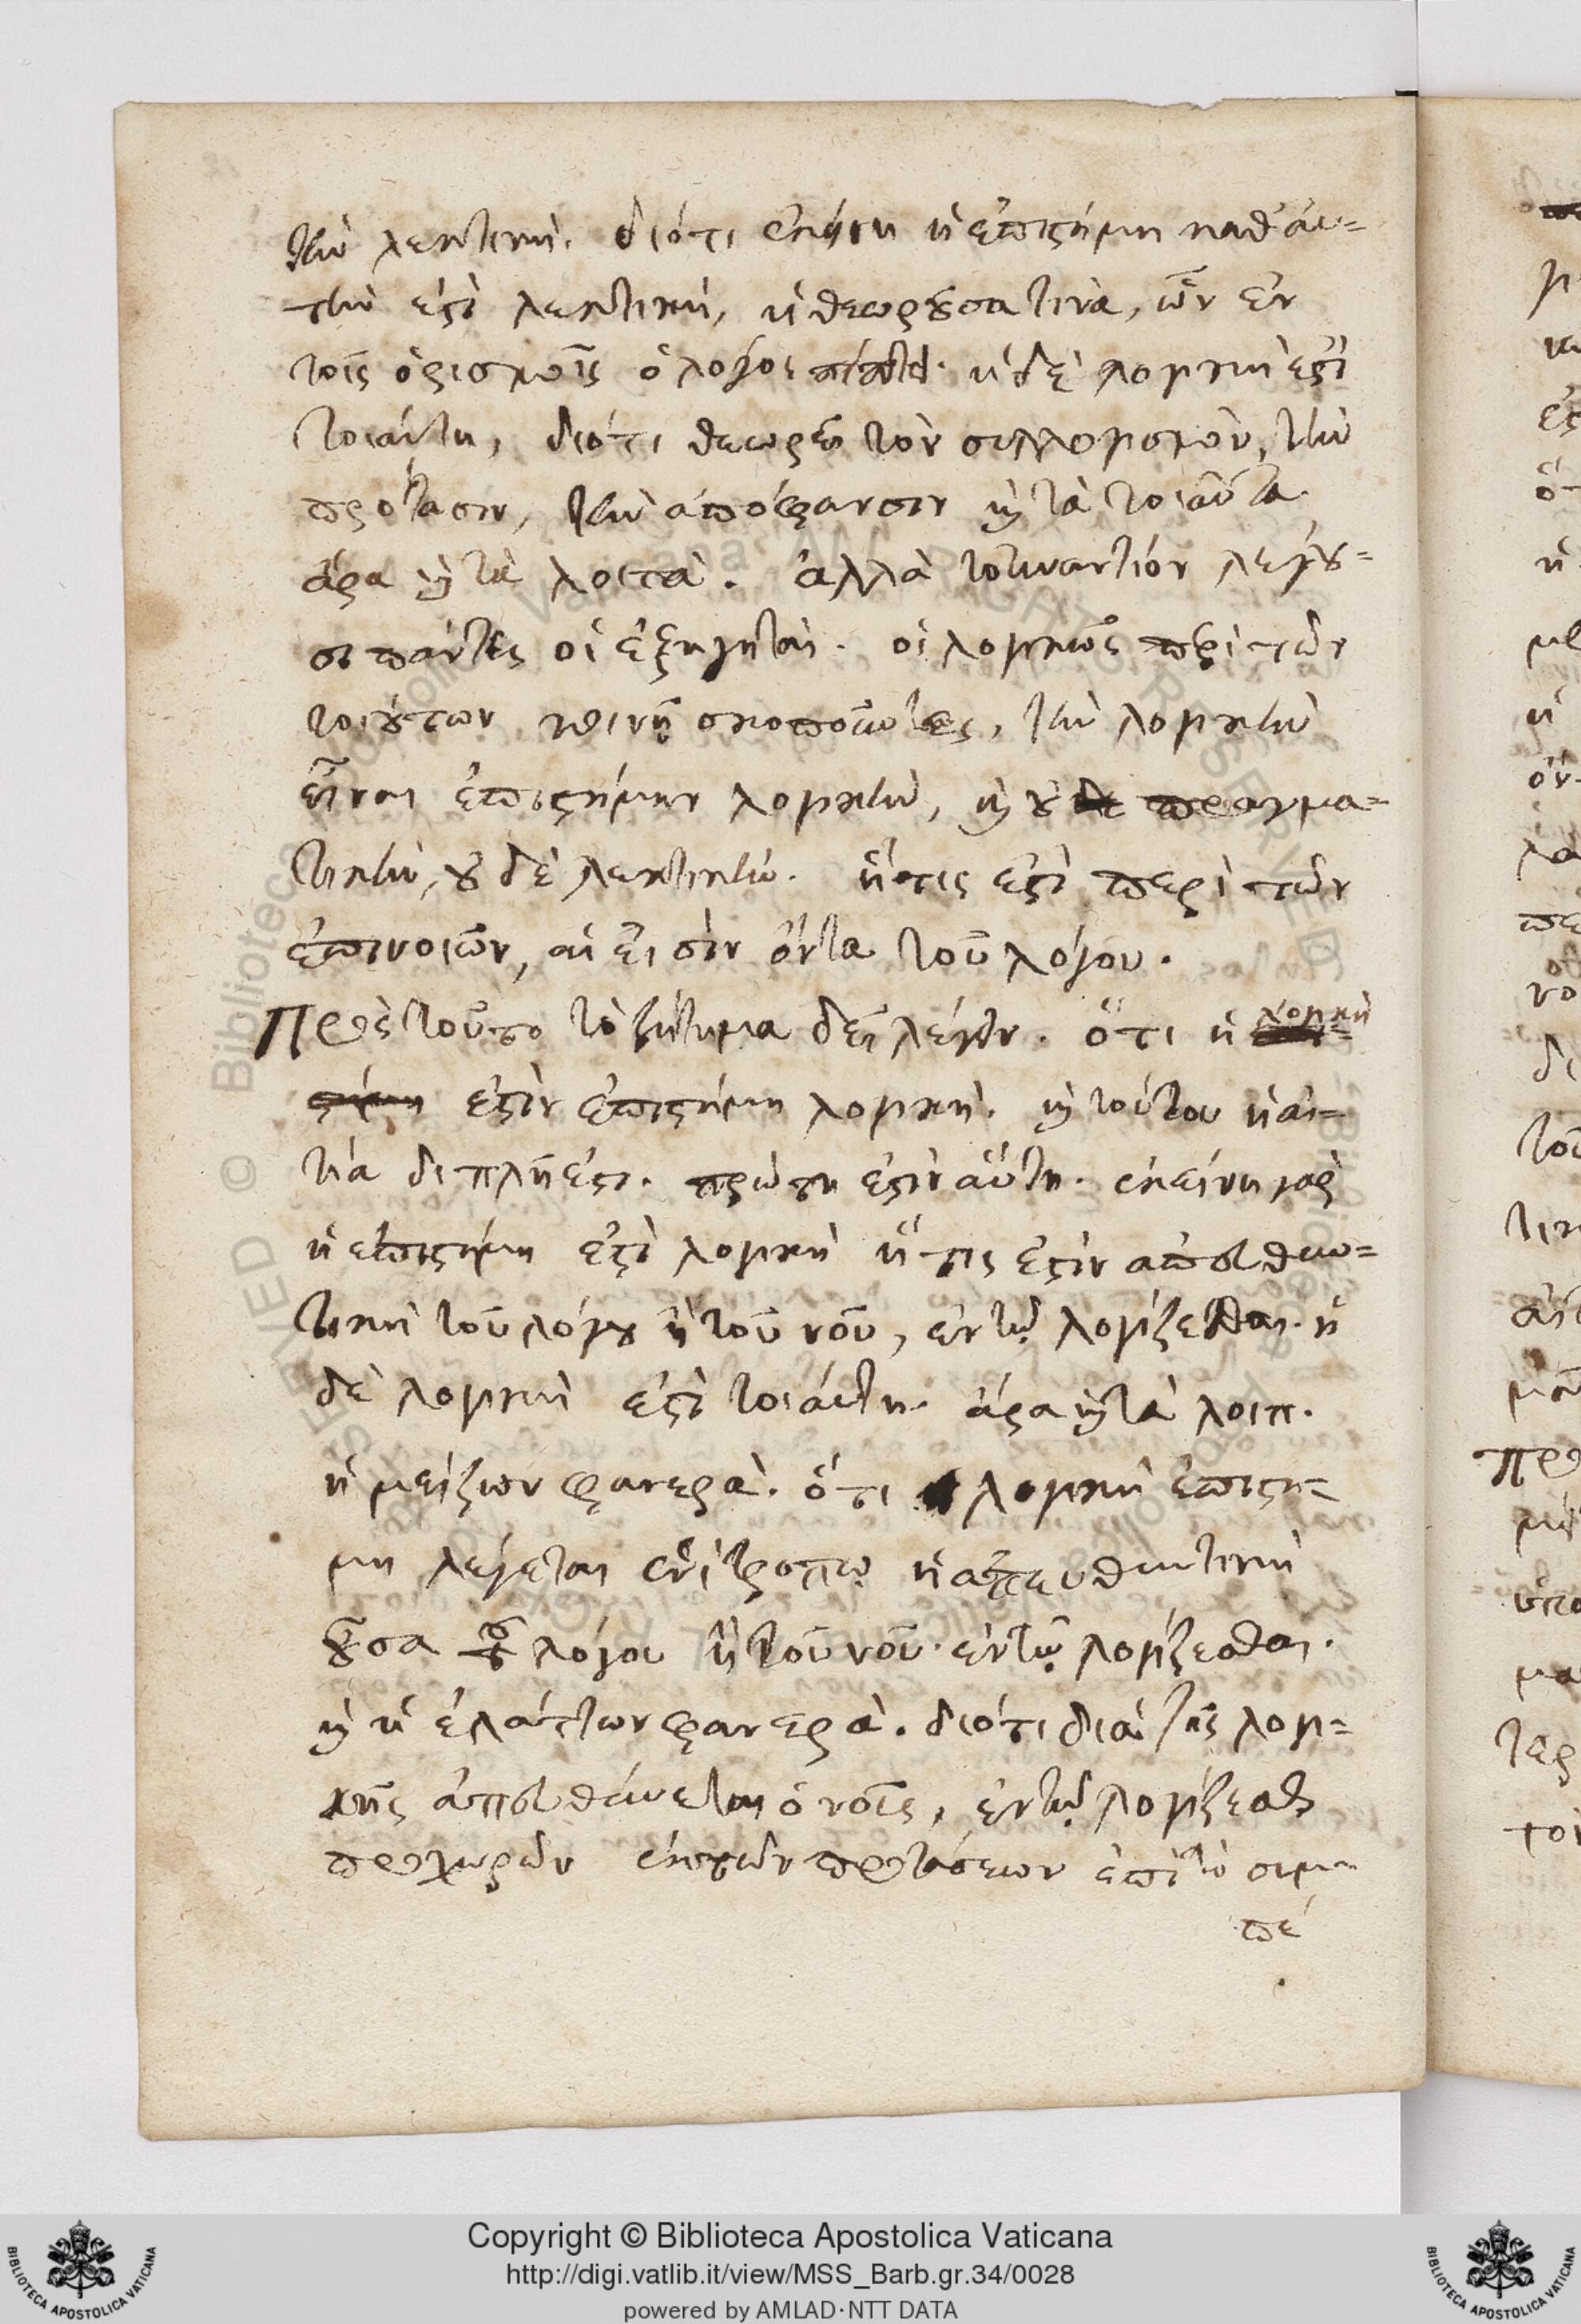 τὴν λεκτικὴ. διότι ἐκείνη ἡ ἐπιστήμη καθ' αὑ=
τὴν ἐστὶ λεκτικὴ, ἡ θεωροῦσα τινὰ, ὧν ἐν
τοῖς ὁρισμοῖς ὁ λόγος ἡ δὲ λογικὴ ἐστὶ
τοιαύτη, διότι θεωρεῖ τὸν συλλογισμὸν, τὴν
πρότασιν, τὴν ἀπόφανσιν καὶ τὰ τοιαῦτα
ἄρα καὶ τὰ λοιπὰ. ἀλλὰ τοὐναντίον λέγου=
σι πάντες οἱ ἐξηγηταὶ. οἱ λογικῶς περὶ τῶν
τοιούτων σκοποῦντες, τὴν λογικὴν
εἶναι ἐπιστήμην λογικὴν, καὶ οὐ πραγμα=
τικὴν, οὐδὲ λεκτικὴν. ἥτις ἐστὶ περὶ τῶν
ἐπινοιῶν, αἳ εἰσὶν ὄντα τοῦ λόγου.
Πρὸς τοῦτο τὸ ζήτημα δεῖ λέγειν. ὅτι ἡ λογικὴ
ἐστὶν ἐπιστήμη λογικὴ. καὶ τούτου ἡ αἰ=
τία διπλῆ ἐστι. πρώτη ἐστὶν αὕτη. ἐκείνη γὰρ
ἡ ἐπιστήμη ἐστὶ λογικὴ ἥτις ἐστὶν ἀπευθυν=
τικὴ τοῦ λόγου ἢ τοῦ νοῦ, ἐν τῷ λογίζεσθαι. ἡ
δὲ λογικὴ ἐστὶ τοιαύτη. ἄρα καὶ τὰ λοιπ.
ἡ μείζων φανερὰ. ὅτι λογικὴ ἐπιστή=
μη λέγεται ἑνὶ τρόπῳ ἡ ἀπευθυντικὴ
οὖσα τοῦ λόγου ἢ τοῦ νοῦ. ἐν τῷ λογίζεσθαι.
καὶ ἡ ἐλάττων φανερὰ. διότι διὰ τῆς λογι=
κῆς ἀπευθύνεται ὁ νοῦς, ἐν τῷ λογίζεσθαι
προχωρῶν ἐκ τῶν προτάσεων ἐπὶ τὸ συμ=
πέ
Copyright © Biblioteca Apostolica Vaticana
http://digi.vatlib.it/view/MSS_Barb.gr.34/0028
powered by AMLAD·NTT DATA